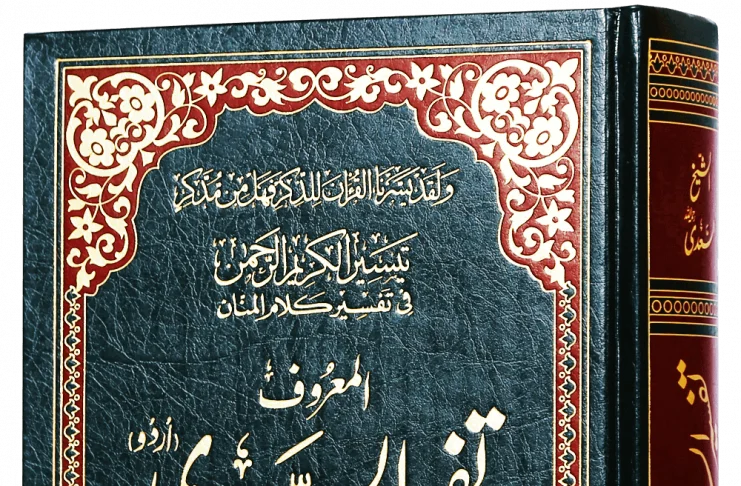 وَلَقَدْ يَسَّرْنَا الْقُرْآنَ لِلذِّكْرِ فَهَلْ مِنْ مُدَّكِرٍ
تَيسِيْر الكَرِيْم الرَّحمٰن
فِي تَفسِيْر كَلَام المَنَّان
المعرُوف
تفسیر السّعدی (اُردُو)
الشيخ
السّعدی
تفسیر